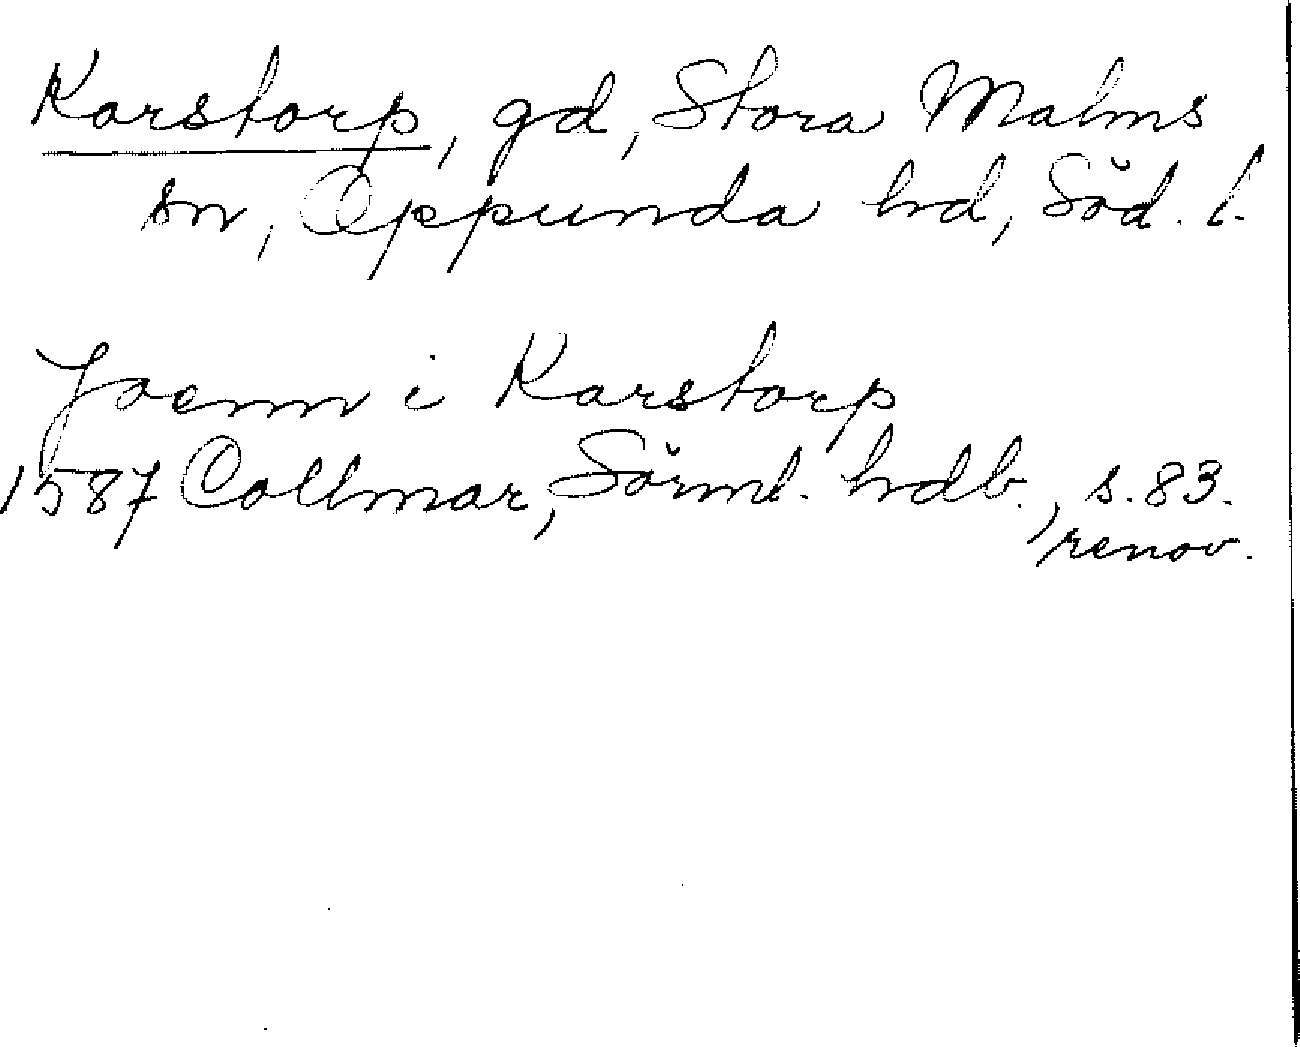 Karstorp, gd, Stora Malms
sn, Oppunda hd, Söd. l.
Joenn i Karstorp
1587 Collmar, Sörml. hdb., s. 83.
renov.